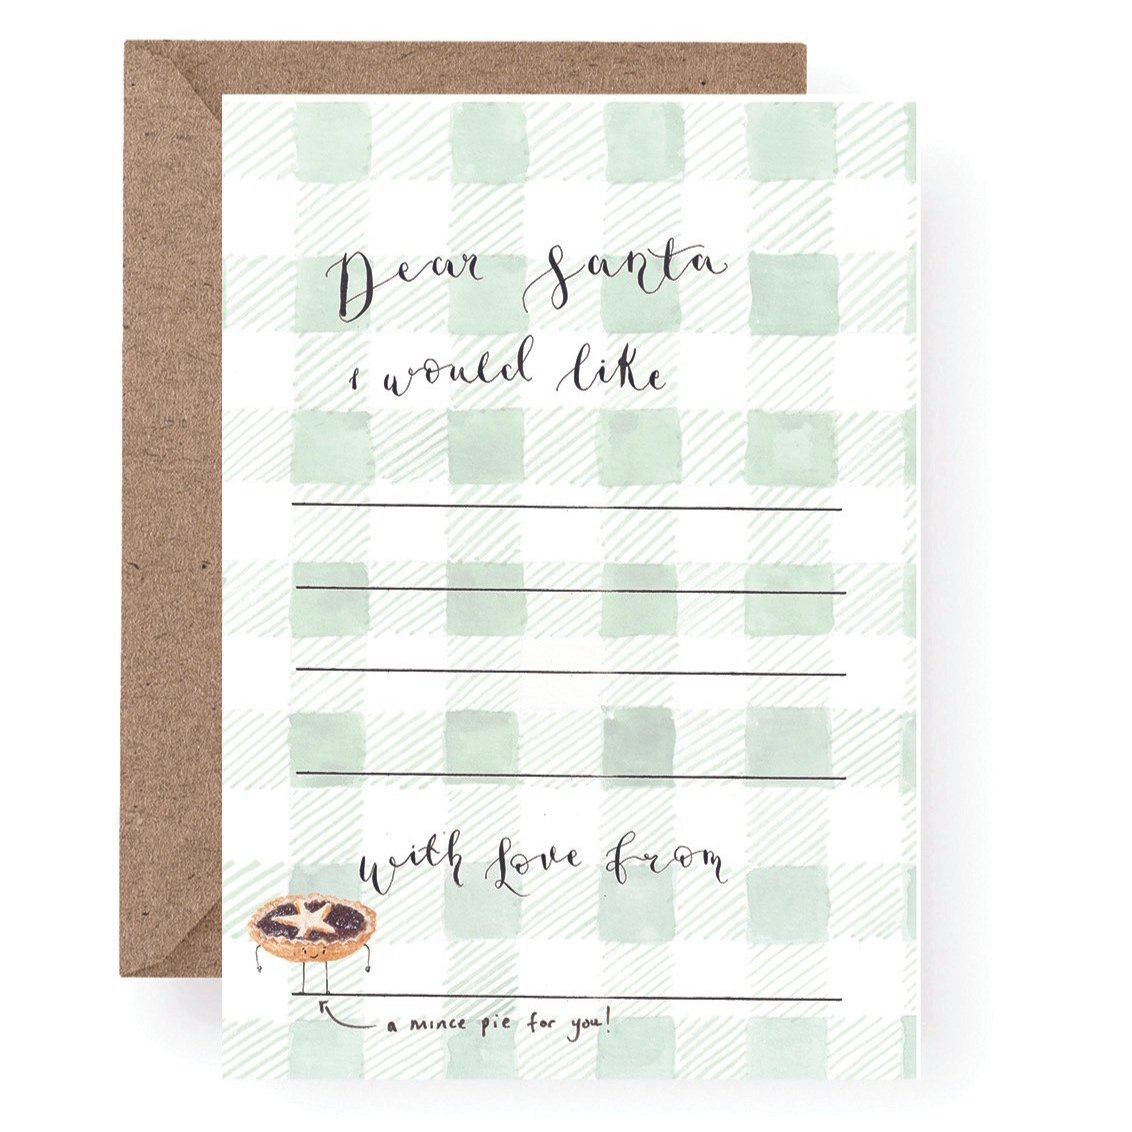 Dear Santa
I would like
with love from
a mince pie for you!